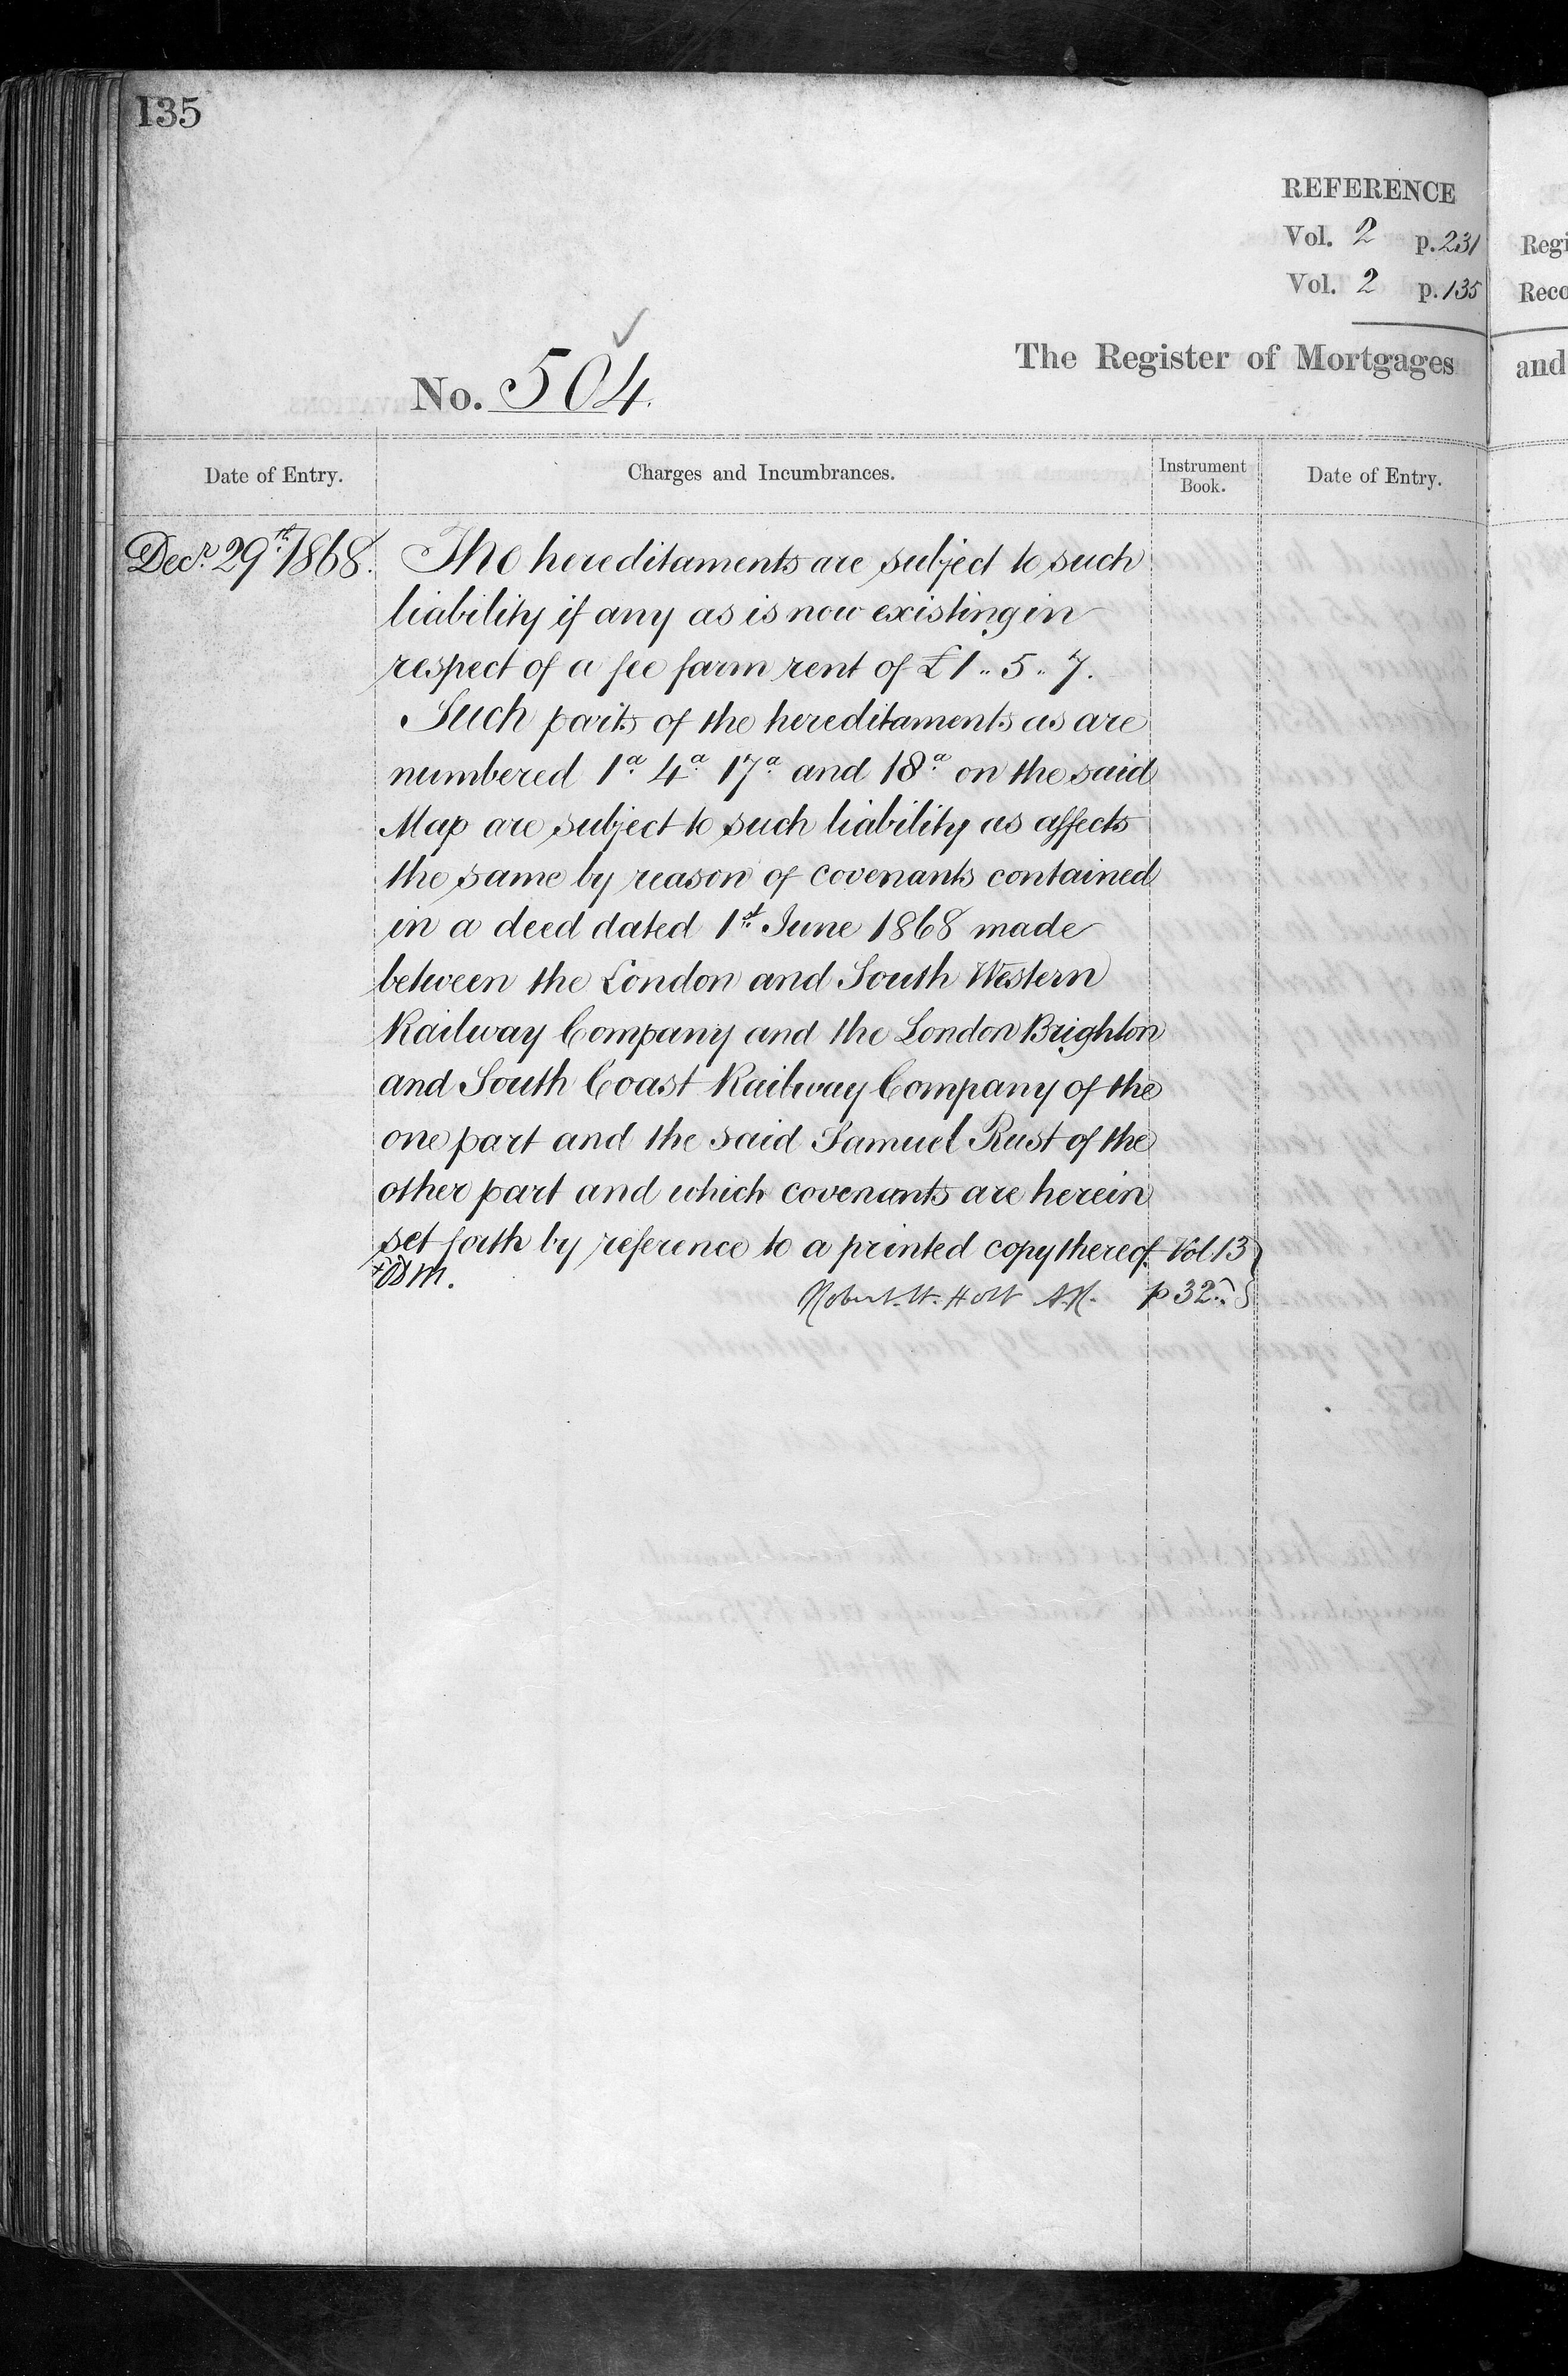 135
REFERENCE
Vol. 2 p. 231
Vol. 2 p. 135
The Register of Mortgages
No. 504.
Date of Entry.
Charges and Incumbrances.
Instrument Book.
Date of Entry.
Decr. 29th 1868.
The hereditaments are subject to such
liability if any as is now existing in
respect of a fee farm rent of £1..5..7.
Such parts of the hereditaments as are
numbered 1a 4a 17a and 18a on the said
Map are subject to such liability as affects
the same by reason of covenants contained
in a deed dated 1st June 1868 made
between the London and South Western
Railway Company and the London Brighton
and South Coast Railway Company of the
one part and the said Samuel Rust of the
other part and which covenants are herein
set forth by reference to a printed copy thereof. Vol. 13
Robert. W. Holt A.R. p 32.
Regi
Reco
and